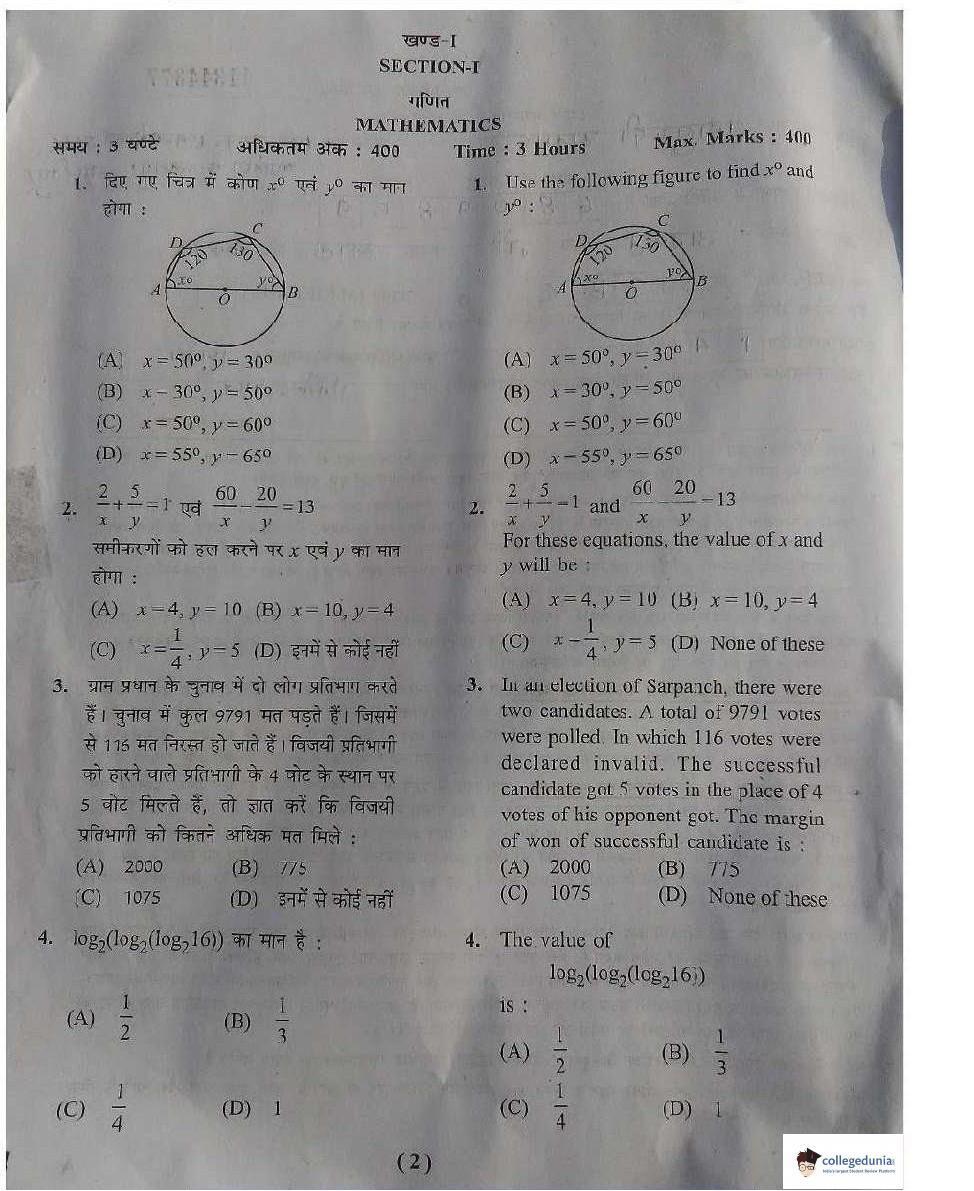 खण्ड-I
SECTION-I
गणित
MATHEMATICS
समय : 3 घण्टे अधिकतम अंक : 400 Time : 3 Hours Max. Marks : 400
1. दिए गए चित्र में कोण x⁰ एवं y⁰ का मान
होगा :
D C
120 130
x⁰ y⁰
A O B
(A) x = 50⁰, y = 30⁰
(B) x – 30⁰, y = 50⁰
(C) x = 50⁰, y = 60⁰
(D) x = 55⁰, y – 65⁰
2. 2/x + 5/y = 1 एवं 60/x – 20/y = 13
समीकरणों को हल करने पर x एवं y का मान
होगा :
(A) x = 4, y = 10 (B) x = 10, y = 4
(C) x = 1/4, y = 5 (D) इनमें से कोई नहीं
3. ग्राम प्रधान के चुनाव में दो लोग प्रतिभाग करते
हैं। चुनाव में कुल 9791 मत पड़ते हैं। जिसमें
से 116 मत निरस्त हो जाते हैं। विजयी प्रतिभागी
को हारने वाले प्रतिभागी के 4 वोट के स्थान पर
5 वोट मिलते हैं, तो ज्ञात करें कि विजयी
प्रतिभागी को कितने अधिक मत मिले :
(A) 2000 (B) 775
(C) 1075 (D) इनमें से कोई नहीं
4. log₂(log₂(log₂16)) का मान है :
(A) 1/2 (B) 1/3
(C) 1/4 (D) 1
1. Use the following figure to find x⁰ and
y⁰ :
D C
120 130
x⁰ y⁰
A O B
(A) x = 50⁰, y = 30⁰
(B) x = 30⁰, y = 50⁰
(C) x = 50⁰, y = 60⁰
(D) x – 55⁰, y = 65⁰
2. 2/x + 5/y = 1 and 60/x – 20/y = 13
For these equations, the value of x and
y will be :
(A) x = 4, y = 10 (B) x = 10, y = 4
(C) x – 1/4, y = 5 (D) None of these
3. In an election of Sarpanch, there were
two candidates. A total of 9791 votes
were polled. In which 116 votes were
declared invalid. The successful
candidate got 5 votes in the place of 4
votes of his opponent got. The margin
of won of successful candidate is :
(A) 2000 (B) 775
(C) 1075 (D) None of these
4. The value of
log₂(log₂(log₂16))
is :
(A) 1/2 (B) 1/3
(C) 1/4 (D) 1
(2)
collegedunia
India's largest Student Review Platform